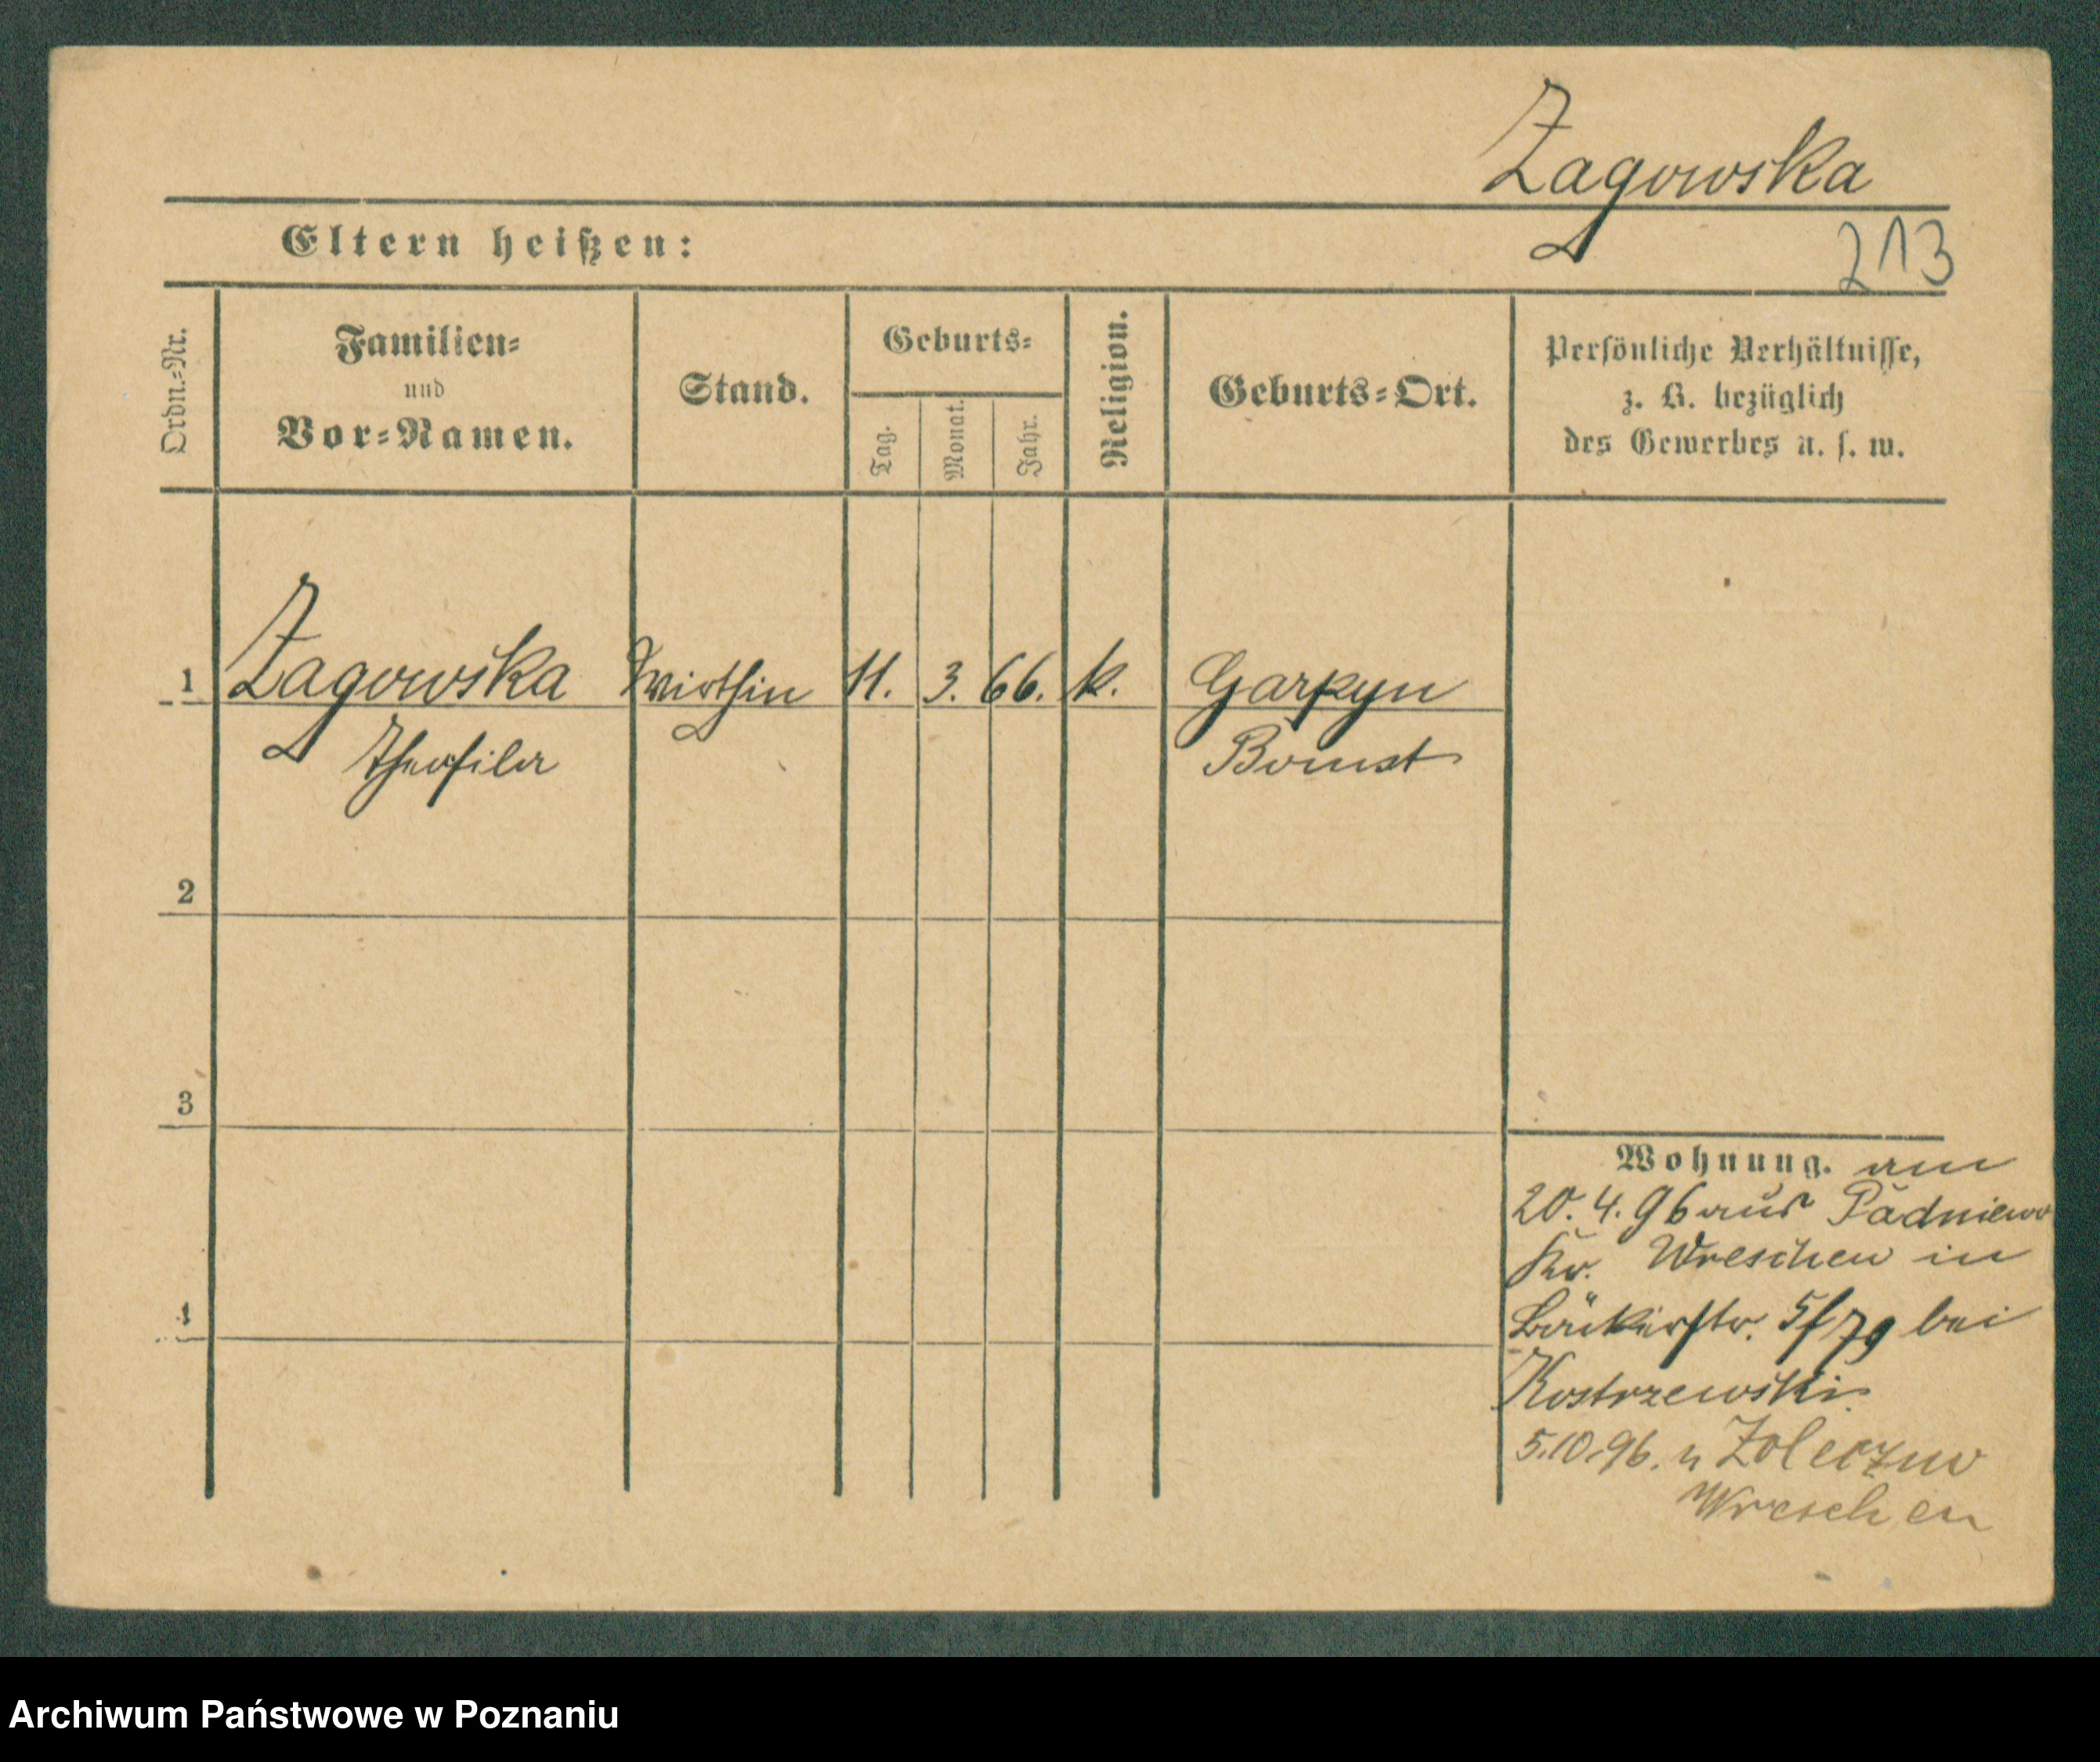 Zagowska
Eltern heißen:
213
Ordn.-Nr.
Familien-
und
Vor-Namen.
Stand.
Geburts-
Tag.
Monat.
Jahr.
Religion.
Geburts-Ort.
Persönliche Verhältnisse,
z. B. bezüglich
des Gewerbes u. s. w.
1 Zagowska Wirthin 11. 3. 66. k.
Theofila Bomst
2
3
4
Wohnung. am
20. 4. 96 aus
Kr. Wreschen in
Bäckerstr. 5/79 bei
Kostrzewski.
5.10.96. n
Wreschen
Archiwum Państwowe w Poznaniu